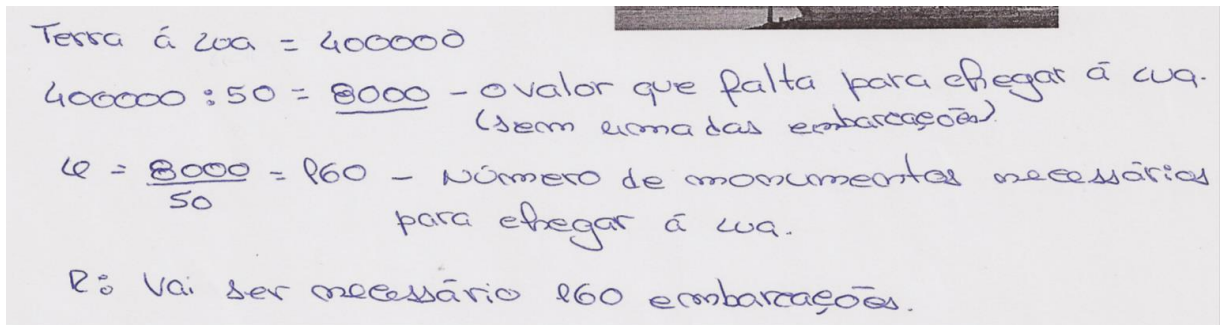 Terra á Lua = 400000
400000 : 50 = 8000 - o valor que falta para chegar á Lua.
(sem uma das embarcações)
= 8000/50 = 160 - Número de monumentos necessários
para chegar á Lua.
R: Vai ser necessário 160 embarcações.